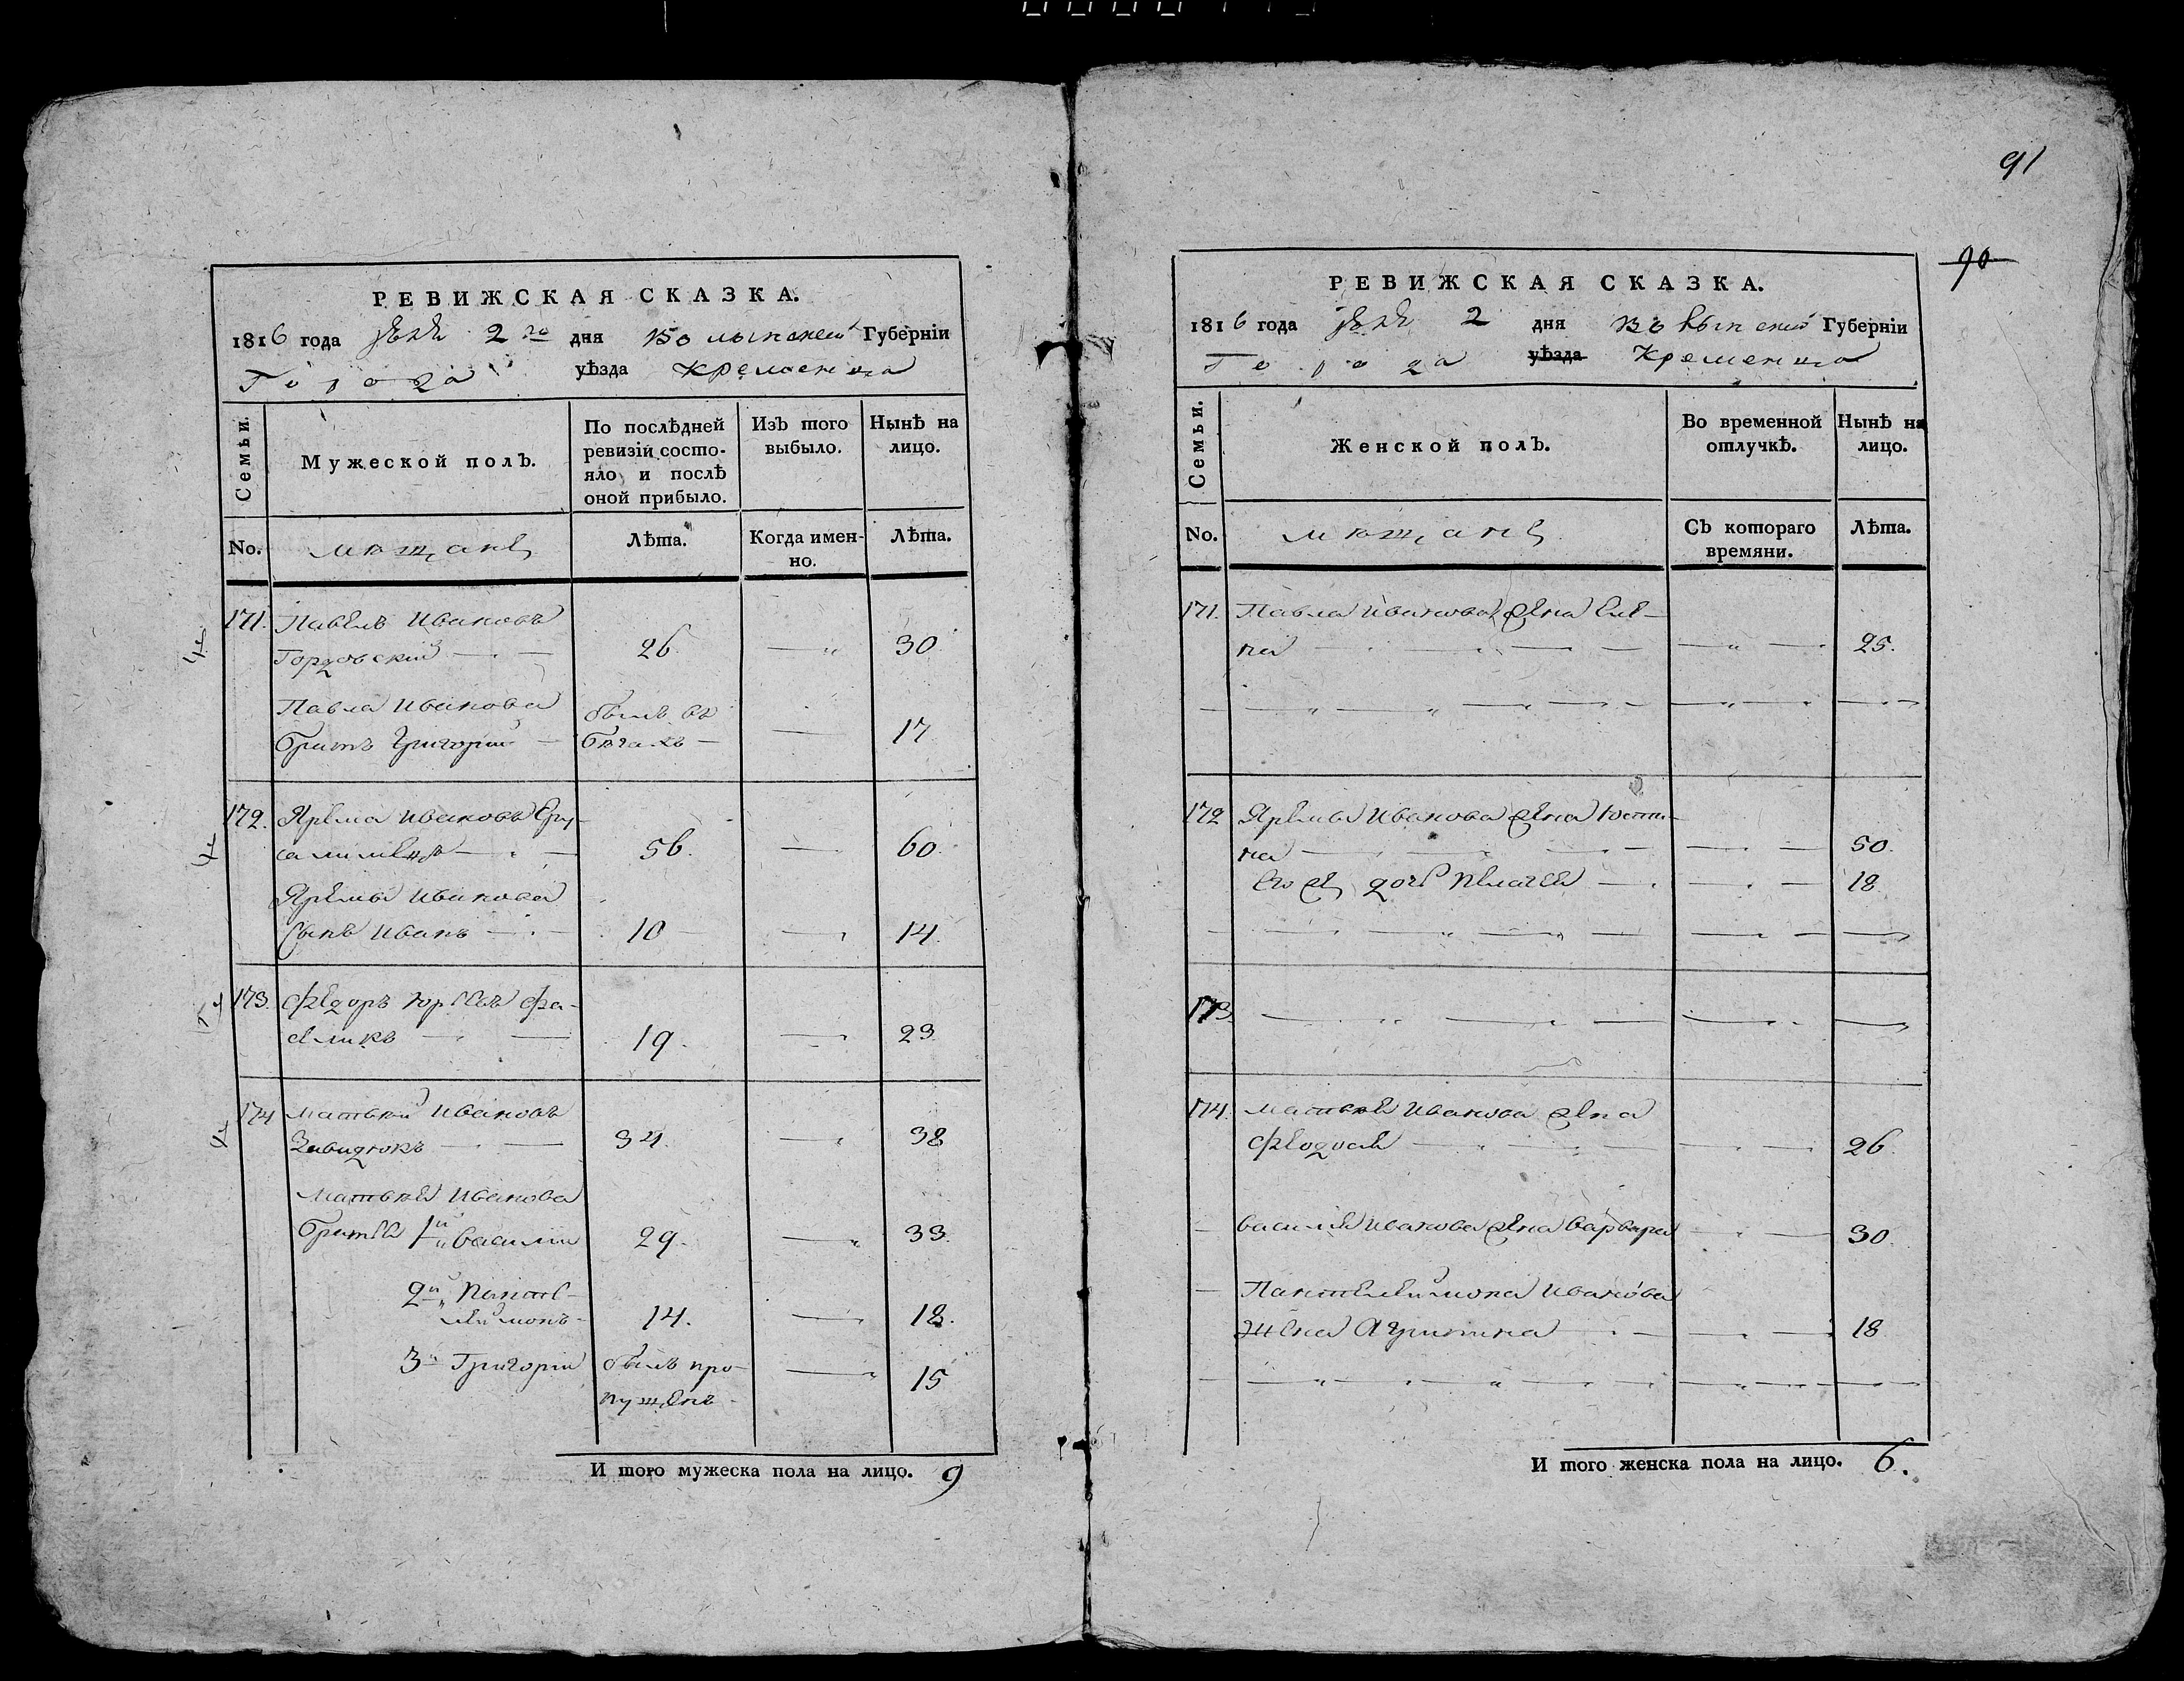 91
90
РЕВИЖСКАЯ СКАЗКА.
1816 года 2го дня Волынской Губерніи
Города уѣзда Кременца
Семьи.
Мужеской полъ.
По послѣдней ревизіи состояло и послѣ оной прибыло.
Изъ того выбыло.
Нынѣ на лицо.
No.
мѣщанѣ
Лѣта.
Когда именно.
Лѣта.
171. Павелъ Ивановъ
26 30
Павла Иванова
братъ Григорій
былъ въ
бѣгахъ
17
172. Ярема Ивановъ Еру-
салимецъ 56. 60.
Яремы Иванова
сынъ Иванъ 10 14.
173. Федоръ Юрьевъ Фа-
19. 23.
174 Матвѣй Ивановъ
Завидюкъ 34. 38
Матвѣя Иванова
братья 1й Василій 29. 33.
2й Панте-
леймонъ 14. 18.
3й Григорій былъ про-
пущенъ
15
И того мужеска пола на лицо. 9
РЕВИЖСКАЯ СКАЗКА.
1816 года 2 дня Волынской Губерніи
Города уѣзда Кременца
Семьи.
Женской полъ.
Во временной отлучкѣ.
Нынѣ на лицо.
No.
мѣщанѣ
Съ котораго времяни.
Лѣта.
171. Павла Иванова жена Еле-
на 25.
172 Яремы Иванова жена Юсти-
на 50.
Его же дочь Пелагея 18.
173.
174. Матвѣя Иванова жена
Федосья 26.
Василія Иванова жена Варвара 30.
Пантелеймона Иванова
жена Агрипина 18
И того женска пола на лицо. 6.